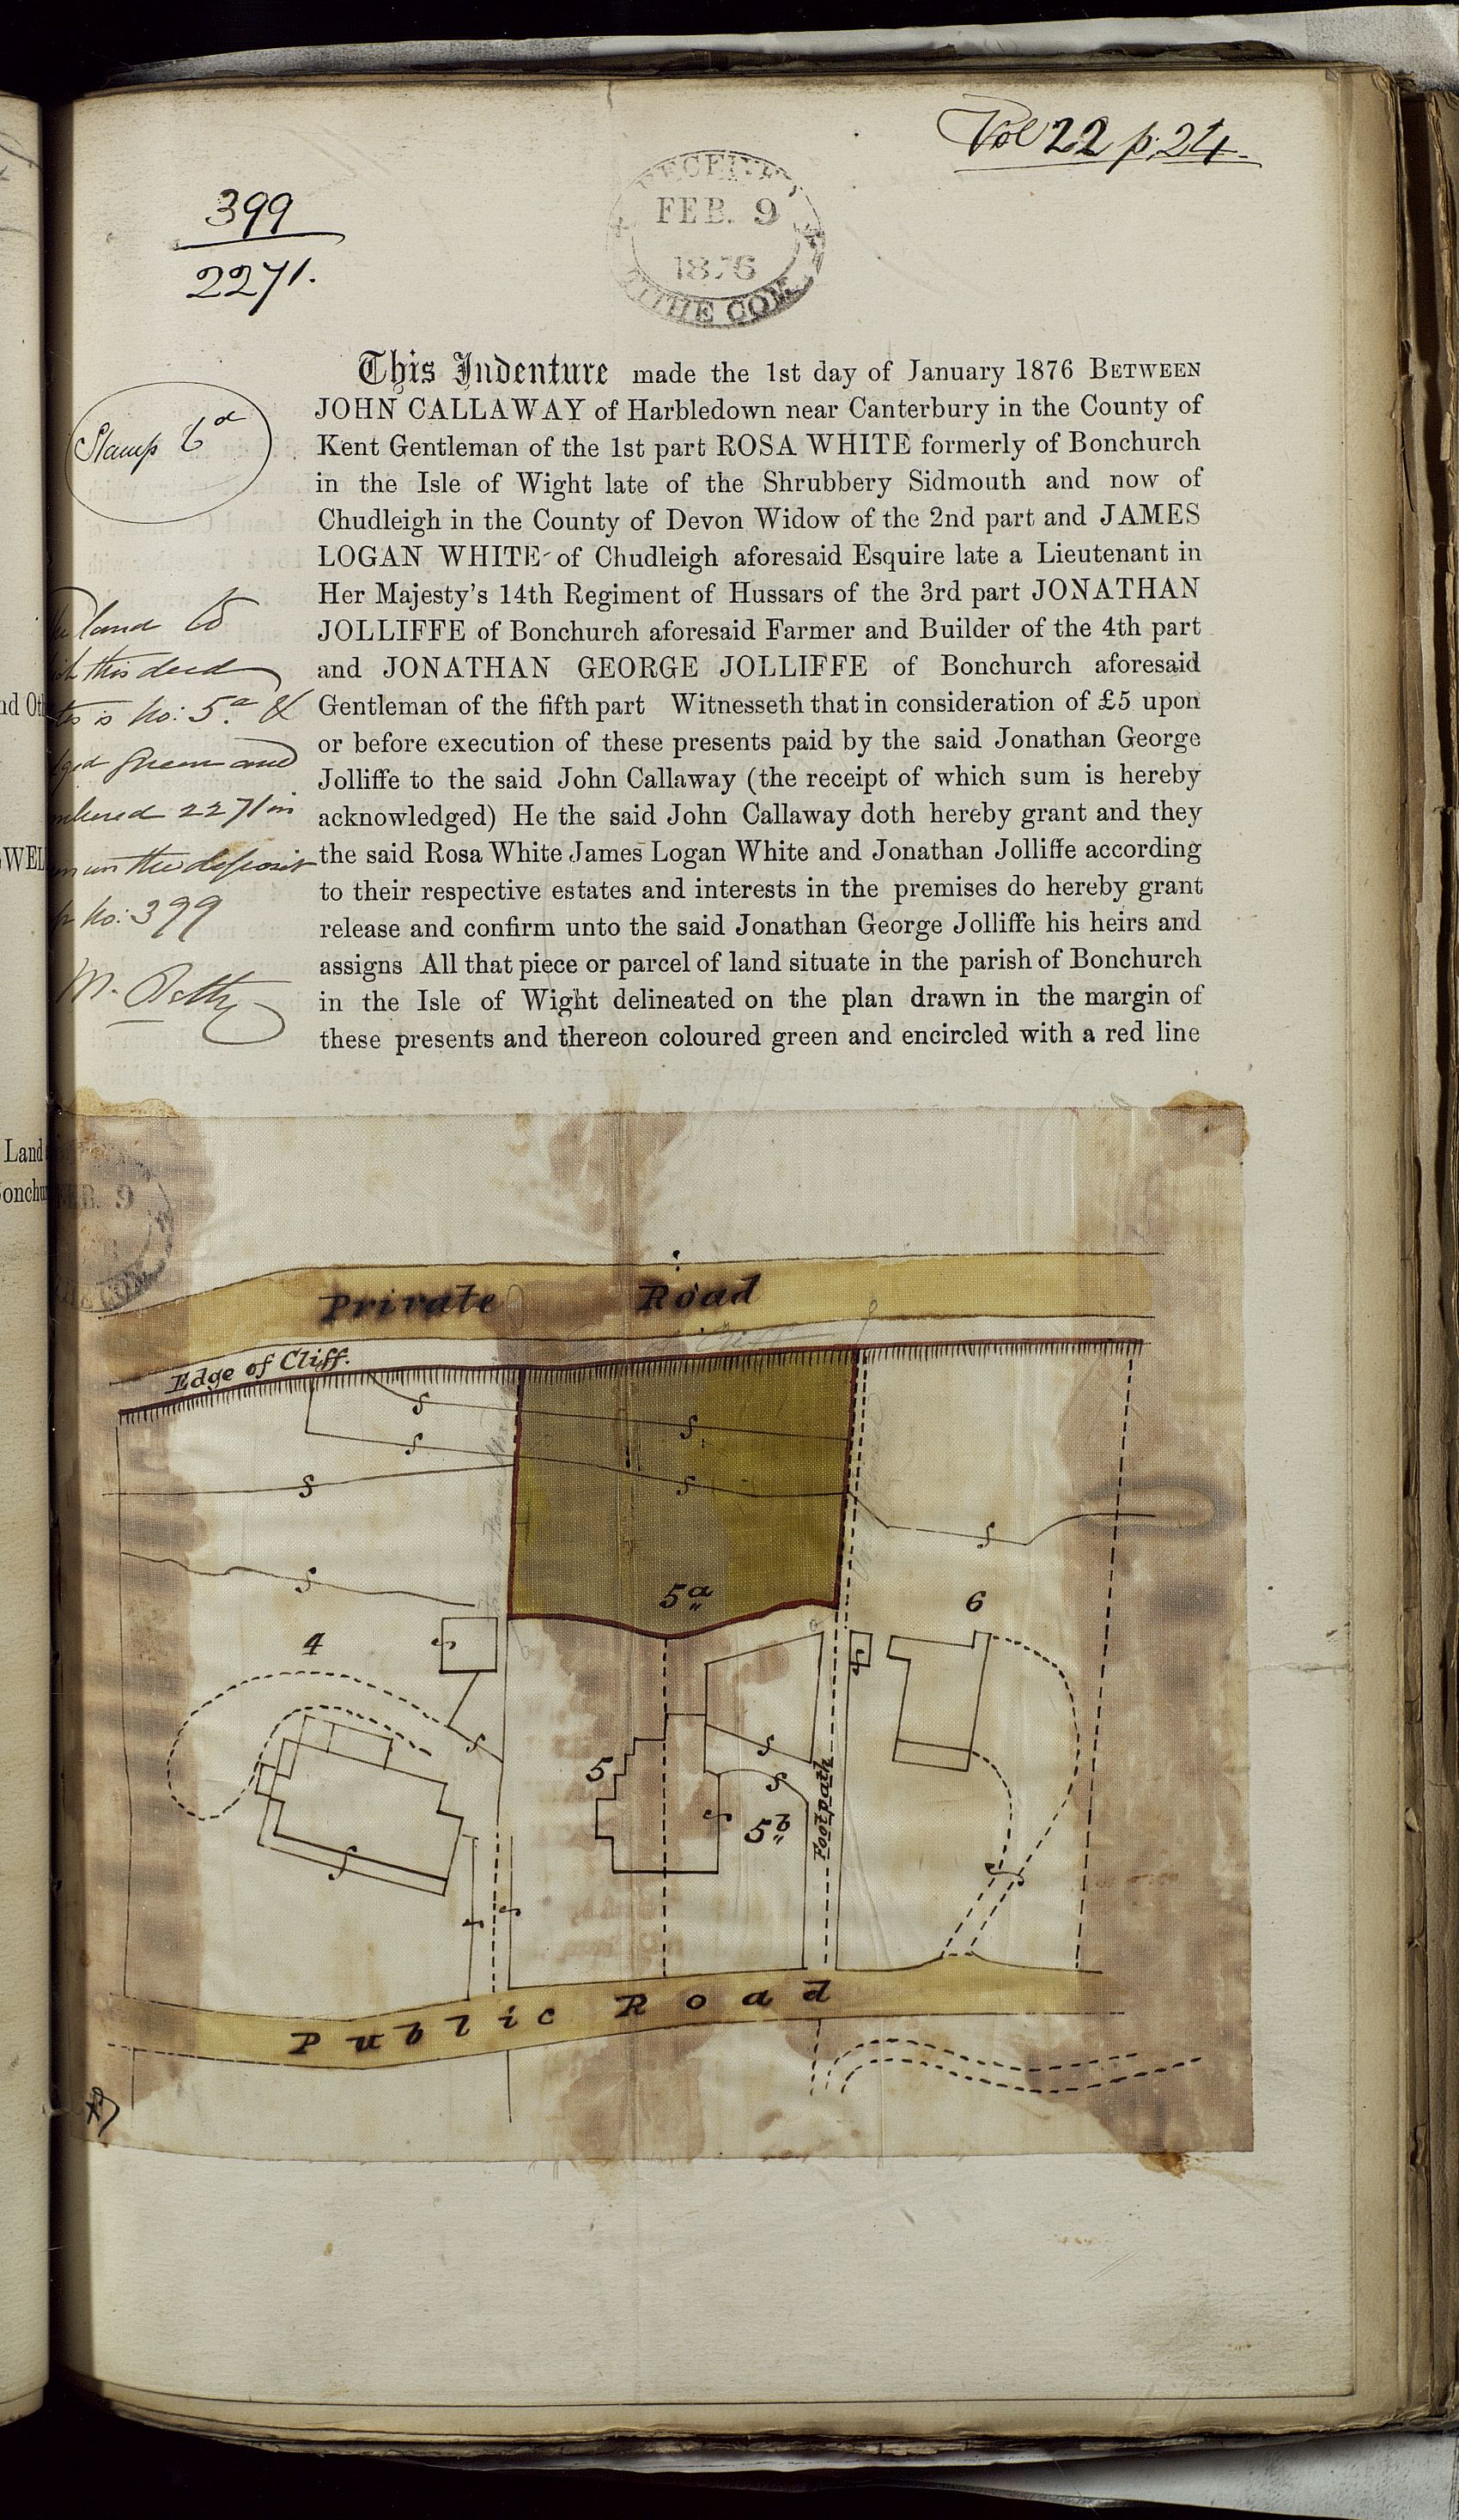 Vol 22 p. 24.
399
2271.
RECEIVED
FEB. 9
1876
TITHE COM.
Stamp 6d
This Indenture made the 1st day of January 1876 BETWEEN
JOHN CALLAWAY of Harbledown near Canterbury in the County of
Kent Gentleman of the 1st part ROSA WHITE formerly of Bonchurch
in the Isle of Wight late of the Shrubbery Sidmouth and now of
Chudleigh in the County of Devon Widow of the 2nd part and JAMES
LOGAN WHITE of Chudleigh aforesaid Esquire late a Lieutenant in
Her Majesty's 14th Regiment of Hussars of the 3rd part JONATHAN
JOLLIFFE of Bonchurch aforesaid Farmer and Builder of the 4th part
and JONATHAN GEORGE JOLLIFFE of Bonchurch aforesaid
Gentleman of the fifth part Witnesseth that in consideration of £5 upon
or before execution of these presents paid by the said Jonathan George
Jolliffe to the said John Callaway (the receipt of which sum is hereby
acknowledged) He the said John Callaway doth hereby grant and they
the said Rosa White James Logan White and Jonathan Jolliffe according
to their respective estates and interests in the premises do hereby grant
release and confirm unto the said Jonathan George Jolliffe his heirs and
assigns All that piece or parcel of land situate in the parish of Bonchurch
in the Isle of Wight delineated on the plan drawn in the margin of
these presents and thereon coloured green and encircled with a red line
land to
this deed
is No: 5.a &
green and
2271 in
on the deposit
No: 399
nd Ot
WEL
Land
onchu
FEB. 9
COM
Private Road
Edge of Cliff.
S
S
S
S
S
S
S
5a
4
6
S
S
S
5
S
S
S
5b
Footpath
S
S
S
Public Road